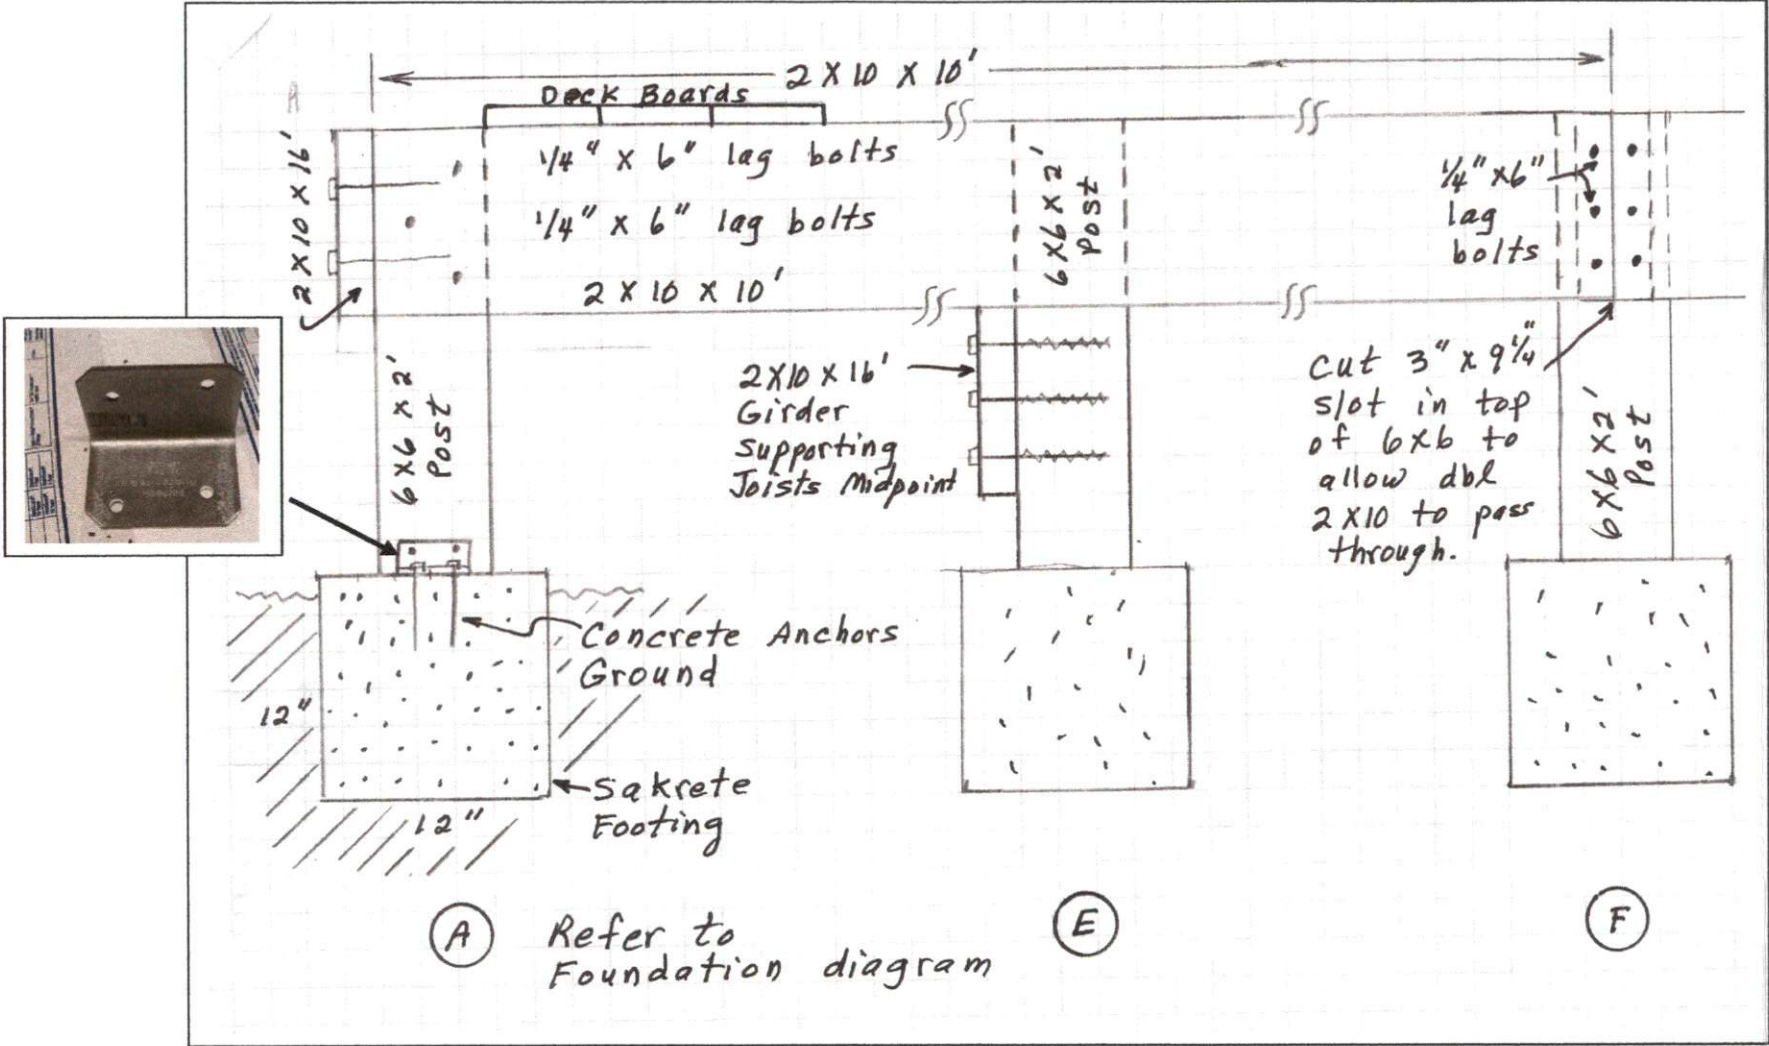 2 X 10 X 10'
Deck Boards
2 X 10 X 16'
1/4" X 6" lag bolts
1/4" X 6" lag bolts
2 X 10 X 10'
6 X 6 X 2'
Post
6 X 6 X 2'
Post
1/4" X 6"
lag
bolts
2 X 10 X 16'
Girder
Supporting
Joists Midpoint
Cut 3" X 9 1/4"
slot in top
of 6X6 to
allow dbl
2 X 10 to pass
through.
6 X 6 X 2'
Post
Concrete Anchors
Ground
12"
12"
Sakrete
Footing
A
Refer to
Foundation diagram
E
F